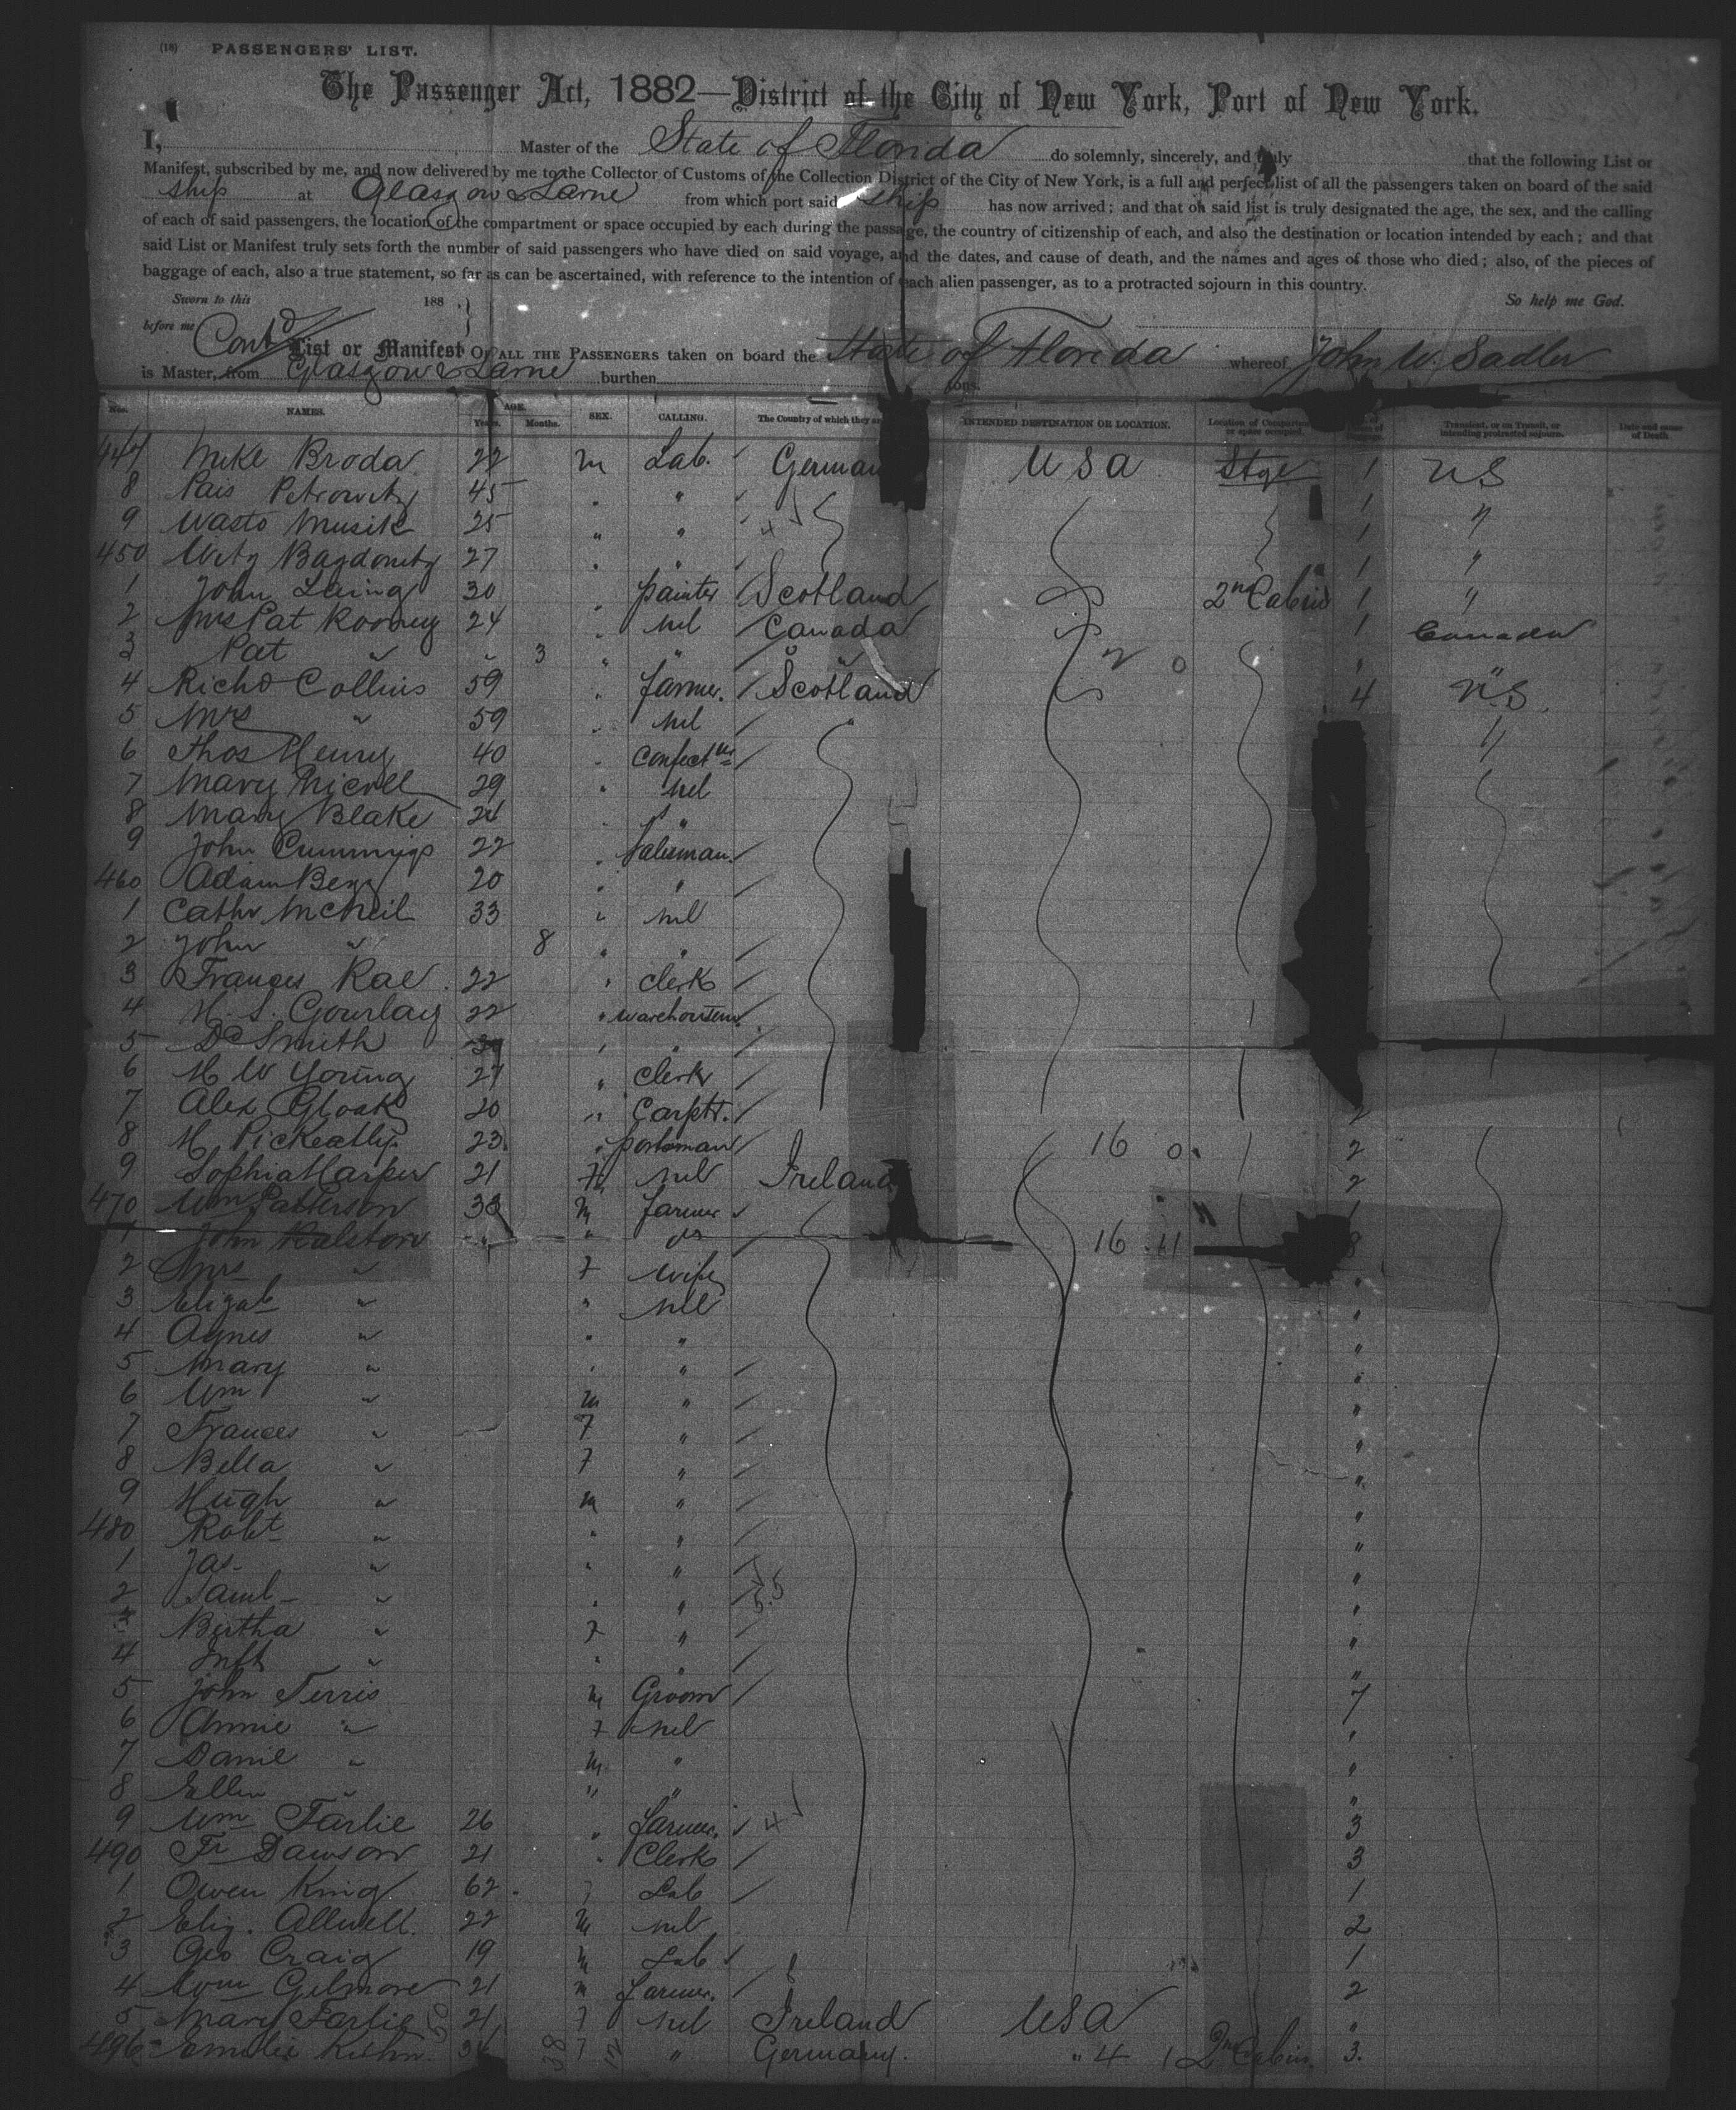 (18) PASSENGERS' LIST.
The Passenger Act, 1882—District of the City of New York, Port of New York.
I, Master of the State of Florida do solemnly, sincerely, and truly that the following List or
Manifest, subscribed by me, and now delivered by me to the Collector of Customs of the Collection District of the City of New York, is a full and perfect list of all the passengers taken on board of the said
ship at Glasgow & Larne from which port said ship has now arrived; and that on said list is truly designated the age, the sex, and the calling
of each of said passengers, the location of the compartment or space occupied by each during the passage, the country of citizenship of each, and also the destination or location intended by each; and that
said List or Manifest truly sets forth the number of said passengers who have died on said voyage, and the dates, and cause of death, and the names and ages of those who died; also, of the pieces of
baggage of each, also a true statement, so far as can be ascertained, with reference to the intention of each alien passenger, as to a protracted sojourn in this country.
Sworn to this 188 So help me God.
before me
Contd List or Manifest OF ALL THE PASSENGERS taken on board the State of Florida whereof John W. Sadler
is Master, from Glasgow & Larne burthen tons.
Nos. NAMES. AGE. Years. Months. SEX. CALLING. The Country of which they are INTENDED DESTINATION OR LOCATION. Location of Compartment or space occupied. Transient, or on Transit, or intending protracted sojourn. Date and cause of Death.
447 Mike Broda 22 m Lab. German USA Stge 1 US
8 Pais Petrowitz 45 " " 1 "
9 Wasto Musik 25 " " 1 "
450 Witz Bagdonitz 27 " " 1 "
1 John Laing 30 " painter Scotland 2nd Cabin 1 "
2 Mrs Pat Rooney 24 " nil Canada 1 Canada
3 Pat " " 3 " " " 2 0 " "
4 Richd Collins 59 " farmer. Scotland 4 US.
5 Mrs " 59 " nil " "
6 Thos Henry 40 " confectnr
7 Mary Nicoll 29 " nil
8 Mary Blake 24 " "
9 John Cummings 22 " Salesman.
460 Adam Berry 20 " "
1 Cathr McNeil 33 " nil
2 John " 8 " "
3 Frances Rae. 22 " clerk
4 H. S. Gourlay 22 " warehousemn.
5 Dd Smith " "
6 H W Young 27 " Clerk
7 Alex Gloak 20 " Carptr. 2
8 H 23 " 16 0 2
9 Sophia Harper 21 F nil Ireland 2
470 Wm Patterson 33 m farmer
1 John Ralston " do 16 11 8
2 Mrs " F wife "
3 Elizab " " nil "
4 Agnes " " " "
5 Mary " " " "
6 Wm " m " "
7 Frances " F " "
8 Bella " F " "
9 Hugh " m " "
480 Robt " " " "
1 Jas. " " " "
2 Saml " " " "
3 Bertha " F " "
4 Inft " " " "
5 John Ferris m Groom 7
6 Annie " F nil "
7 Danil " m " "
8 Ellen " " " "
9 Wm Farlie 26 " farmer. 3
490 Fr Dawson 21 " Clerk 3
1 Owen King 62 Lab 1
2 Eliz. Allwell. 22 nil 2
3 Geo Craig 19 m Lab 1
4 Wm Gilmore 21 m farmer. 2
5 Mary Farlie 21 F nil Ireland USA "
496 Emilie Kuhn. F " Germany. " 4 1 2nd Cabin 3.